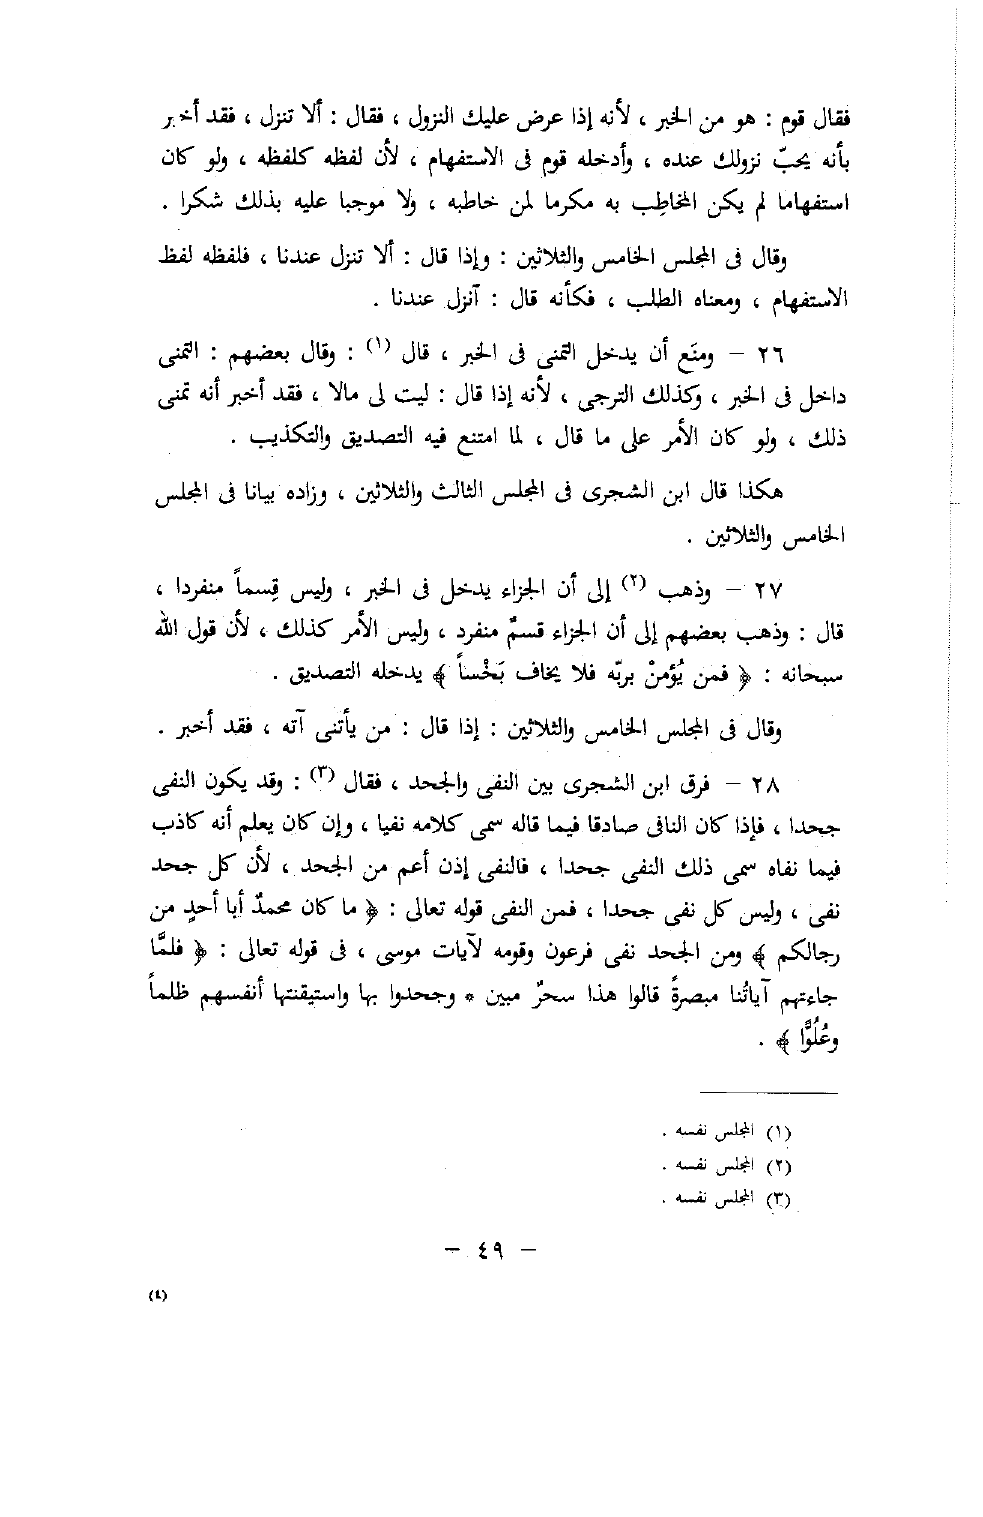 فقال قوم : هو من الخبر ، لأنه إذا عرض عليك النزول ، فقال : ألا تنزل ، فقد أخبر
بأنه يحبّ نزولك عنده ، وأدخله قوم فى الاستفهام ، لأن لفظه كلفظه ، ولو كان
استفهاما لم يكن المخاطِب به مكرما لمن خاطبه ، ولا موجبا عليه بذلك شكرا .
وقال فى المجلس الخامس والثلاثين : وإذا قال : ألا تنزل عندنا ، فلفظه لفظ
الاستفهام ، ومعناه الطلب ، فكأنه قال : آنزل عندنا .
٢٦ – ومنَع أن يدخل التمنى فى الخبر ، قال (١) : وقال بعضهم : التمنى
داخل فى الخبر ، وكذلك الترجى ، لأنه إذا قال : ليت لى مالا ، فقد أخبر أنه تمنى
ذلك ، ولو كان الأمر على ما قال ، لما امتنع فيه التصديق والتكذيب .
هكذا قال ابن الشجرى فى المجلس الثالث والثلاثين ، وزاده بيانا فى المجلس
الخامس والثلاثين .
٢٧ – وذهب (٢) إلى أن الجزاء يدخل فى الخبر ، وليس قِسماً منفردا ،
قال : وذهب بعضهم إلى أن الجزاء قسمٌ منفرد ، وليس الأمر كذلك ، لأن قول الله
سبحانه : ﴿ فمن يُؤمنْ بربّه فلا يخاف بَخْساً ﴾ يدخله التصديق .
وقال فى المجلس الخامس والثلاثين : إذا قال : من يأتنى آته ، فقد أخبر .
٢٨ – فرق ابن الشجرى بين النفى والجحد ، فقال (٣) : وقد يكون النفى
جحدا ، فإذا كان النافى صادقا فيما قاله سمى كلامه نفيا ، وإن كان يعلم أنه كاذب
فيما نفاه سمى ذلك النفى جحدا ، فالنفى إذن أعم من الجحد ، لأن كل جحد
نفى ، وليس كل نفى جحدا ، فمن النفى قوله تعالى : ﴿ ما كان محمدٌ أبا أحدٍ من
رجالكم ﴾ ومن الجحد نفى فرعون وقومه لآيات موسى ، فى قوله تعالى : ﴿ فلمَّا
جاءتهم آياتُنا مبصرةً قالوا هذا سحرٌ مبين * وجحدوا بها واستيقنتها أنفسهم ظلماً
وعُلُوًّا ﴾ .
(١) المجلس نفسه .
(٢) المجلس نفسه .
(٣) المجلس نفسه .
– ٤٩ –
(٤)